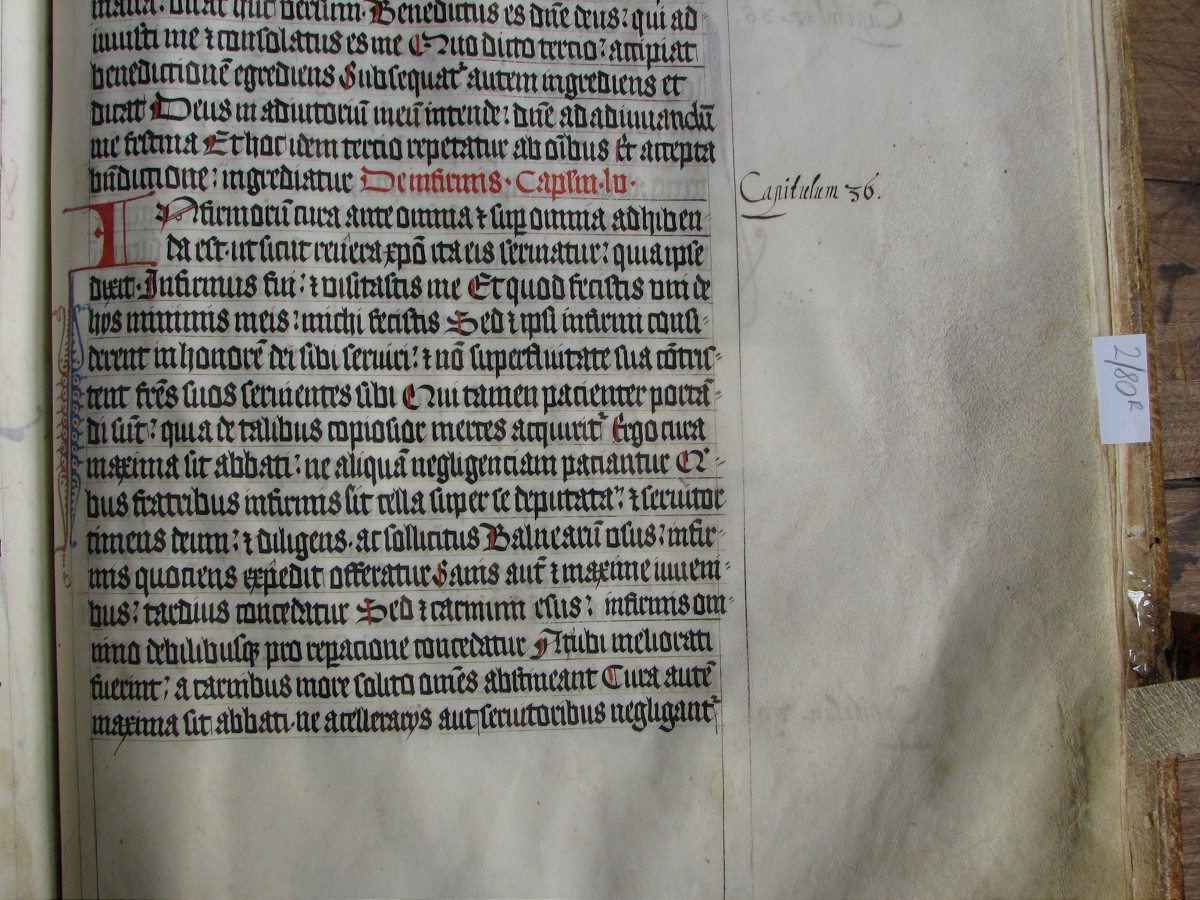 mana. dicat hūc versum. Benedictus es dn̄e deus: qui ad
iuuisti me ⁊ consolatus es me Quo dicto tercio: accipiat
benedictionē egrediens Subsequat᷑ autem ingrediens et
dicat Deus in adiutoriū meū intende: dn̄e ad adiuuandū
me festina Et hoc idem tercio repetatur ab oībus Et accepta
bn̄dictione: ingrediatur De infirmis. Capłm. lv.
INfirmorū cura ante omnia ⁊ sup̄ omnia adhiben-
da est. ut sicut reuera xp̄o ita eis seruiatur: quia ipse
dixit. Infirmus fui: ⁊ visitastis me Et quod fecistis vni de
hijs minimis meis: michi fecistis Sed ⁊ ipsi infirmi consi-
derent in honorē dei sibi seruiri: ⁊ nō superfluitate sua cōtris-
tent frēs suos seruientes sibi Qui tamen pacienter portā-
di sūt: quia de talibus copiosior merces acquirit᷑ Ergo cura
maxima sit abbati: ne aliquā negligenciam paciantur Q-
bus fratribus infirmis sit cella super se deputata: ⁊ seruitor
timens deum: ⁊ diligens. ac sollicitus Balneariū vsus: infir-
mis quociens expedit offeratur Sanis aut̄ ⁊ maxime iuueni-
bus: tardius concedatur Sed ⁊ carnium esus: infirmis om-
nino debilibusqꝫ pro reparacione concedatur At ubi meliorati
fuerint: a carnibus more solito om̄es abstineant Cura autē
maxima sit abbati. ne a cellerarijs aut seruitoribus negligant᷑
Capitulum 36.
2/80R